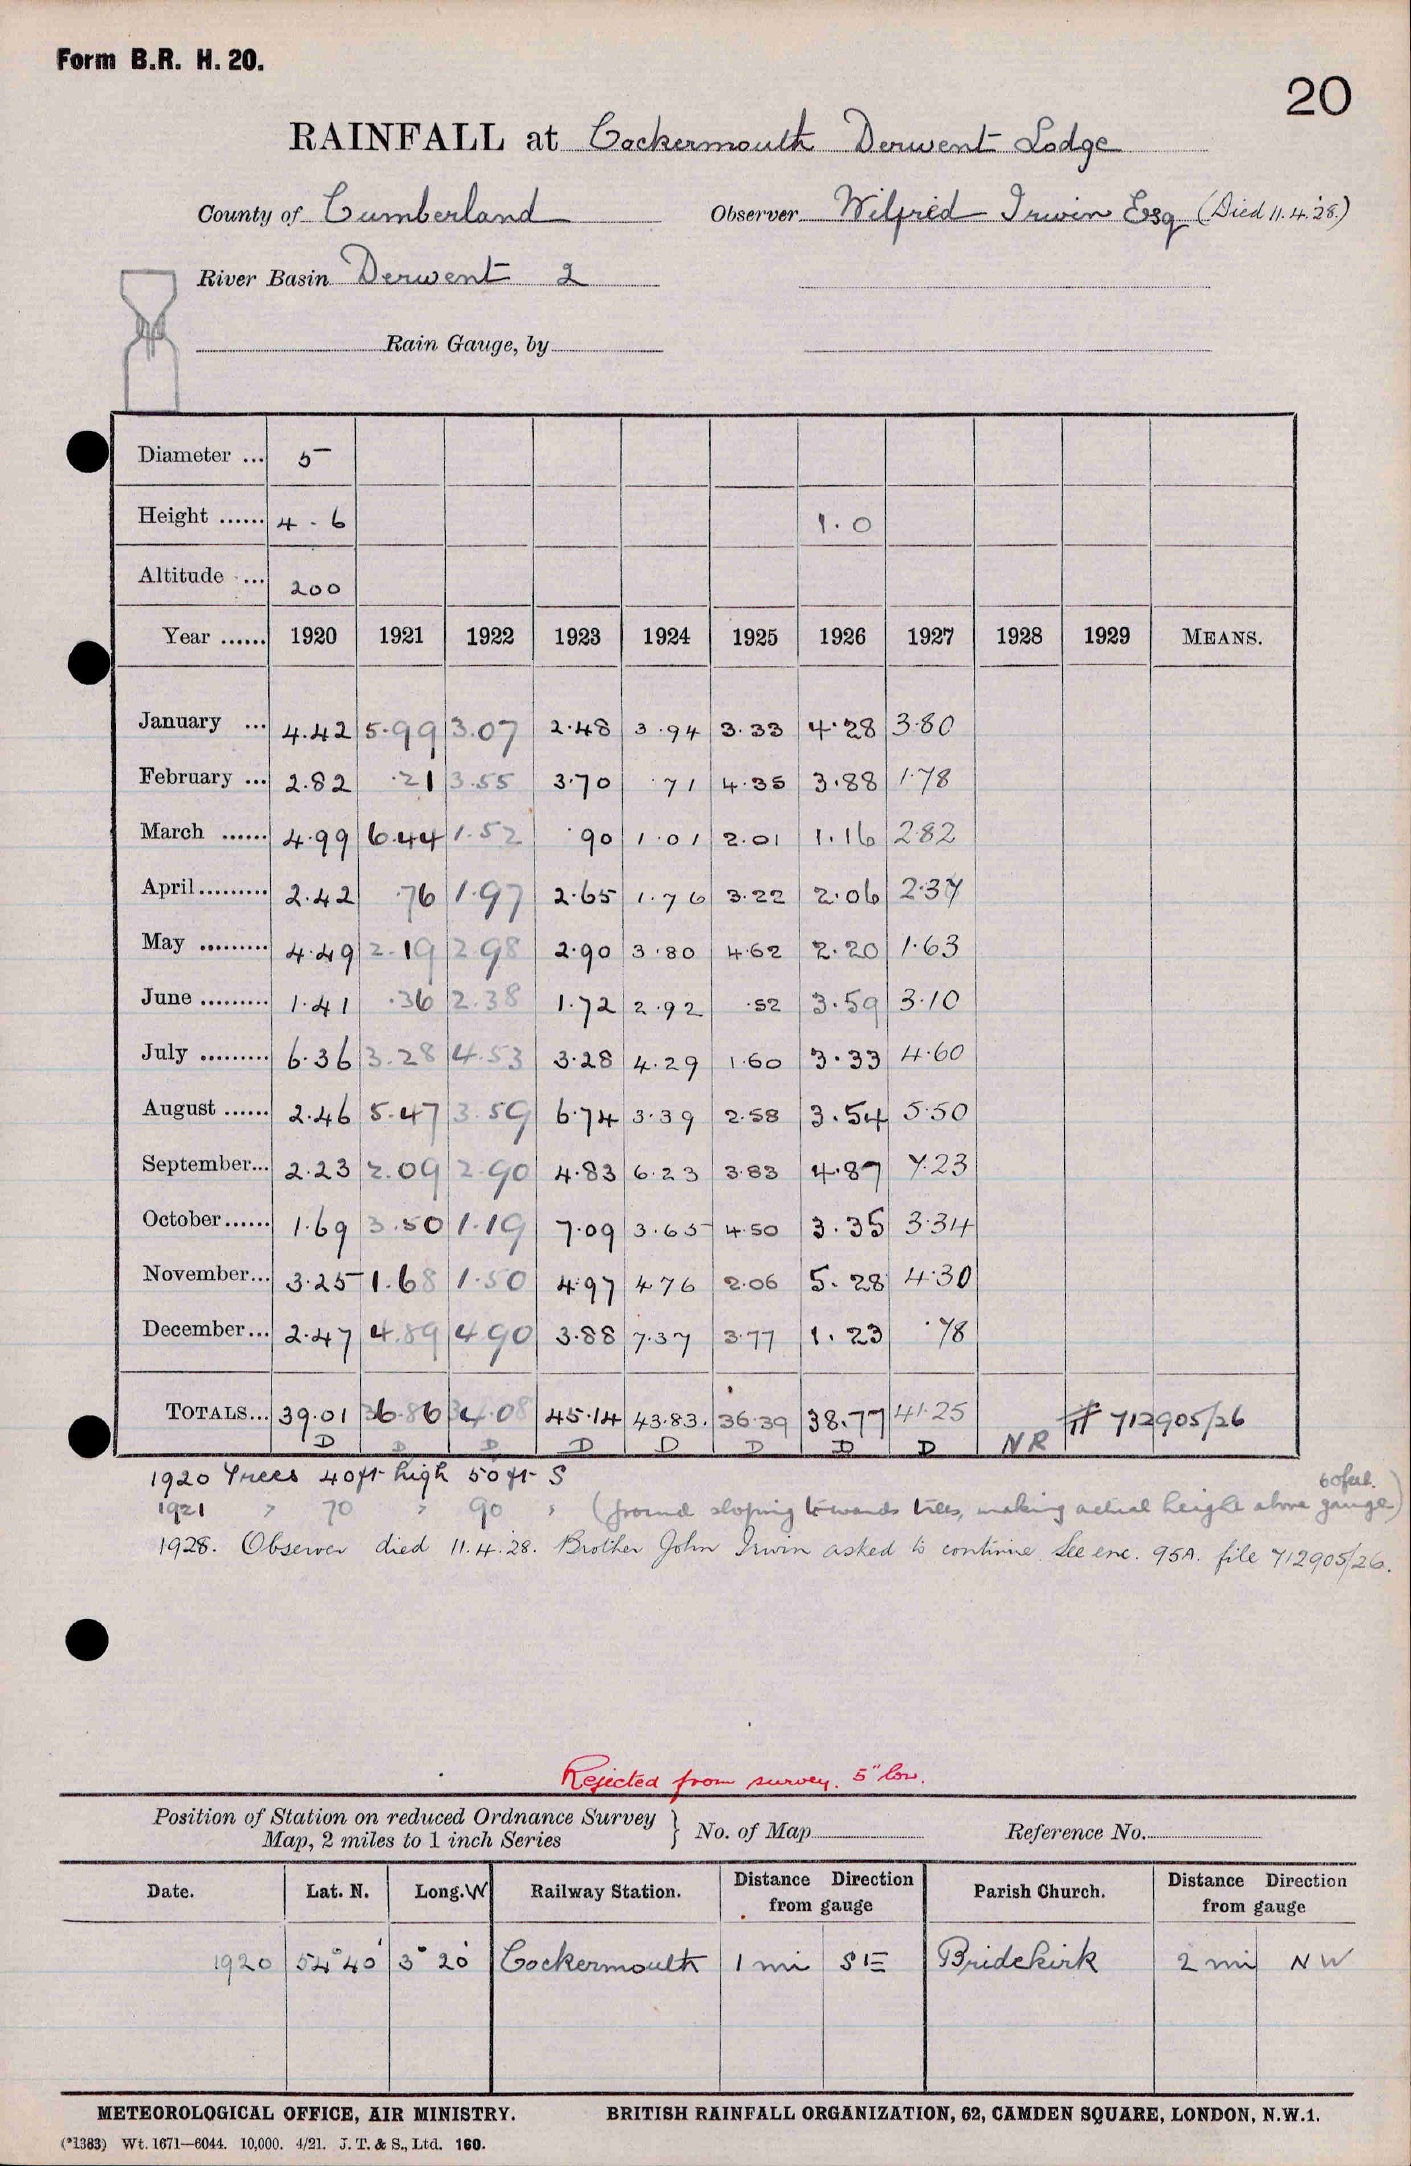 Form B.R. H. 20.
20
RAINFALL at Cockermouth Derwent Lodge
County of Cumberland Observer Wilfred Irwin Esq (Died 11.4.28.)
River Basin Derwent 2
Rain Gauge, by
Diameter ... 5
Height ...... 4 - 6 1.0
Altitude ... 200
Year ...... 1920 1921 1922 1923 1924 1925 1926 1927 1928 1929 MEANS.
January ... 4.42 5.99 3.07 2.48 3.94 3.33 4.28 3.80
February ... 2.82 .21 3.55 3.70 .71 4.35 3.88 1.78
March ...... 4.99 6.44 1.52 .90 1.01 2.01 1.16 2.82
April ......... 2.42 .76 1.97 2.65 1.76 3.22 2.06 2.37
May ......... 4.49 2.19 2.98 2.90 3.80 4.62 2.20 1.63
June ......... 1.41 .36 2.38 1.72 2.92 .52 3.59 3.10
July ......... 6.36 3.28 4.53 3.28 4.29 1.60 3.33 4.60
August ...... 2.46 5.47 3.59 6.74 3.39 2.58 3.54 5.50
September... 2.23 2.09 2.90 4.83 6.23 3.83 4.87 7.23
October...... 1.69 3.50 1.19 7.09 3.65 4.50 3.35 3.34
November... 3.25 1.68 1.50 4.97 4.76 2.06 5.28 4.30
December... 2.47 4.89 4.90 3.88 7.37 3.77 1.23 .78
TOTALS... 39.01 36.86 34.08 45.14 43.83. 36.39 38.77 41.25 # 712905/26
D D D D D D D D NR
1920 Trees 40ft high 50ft S
60 feet.
1921 " 70 " 90 " (ground sloping towards trees, making actual height above gauge)
1928. Observer died 11.4.28. Brother John Irwin asked to continue. See enc. 95A. file 712905/26.
Rejected from survey. 5" low.
Position of Station on reduced Ordnance Survey Map, 2 miles to 1 inch Series } No. of Map Reference No.
Date. Lat. N. Long. W Railway Station. Distance Direction from gauge Parish Church. Distance Direction from gauge
1920 54° 40' 3° 20' Cockermouth 1 mi SE Bridekirk 2 mi NW
METEOROLOGICAL OFFICE, AIR MINISTRY. BRITISH RAINFALL ORGANIZATION, 62, CAMDEN SQUARE, LONDON, N.W.1.
(*1383) Wt. 1671—6044. 10,000. 4/21. J. T. & S., Ltd. 160.